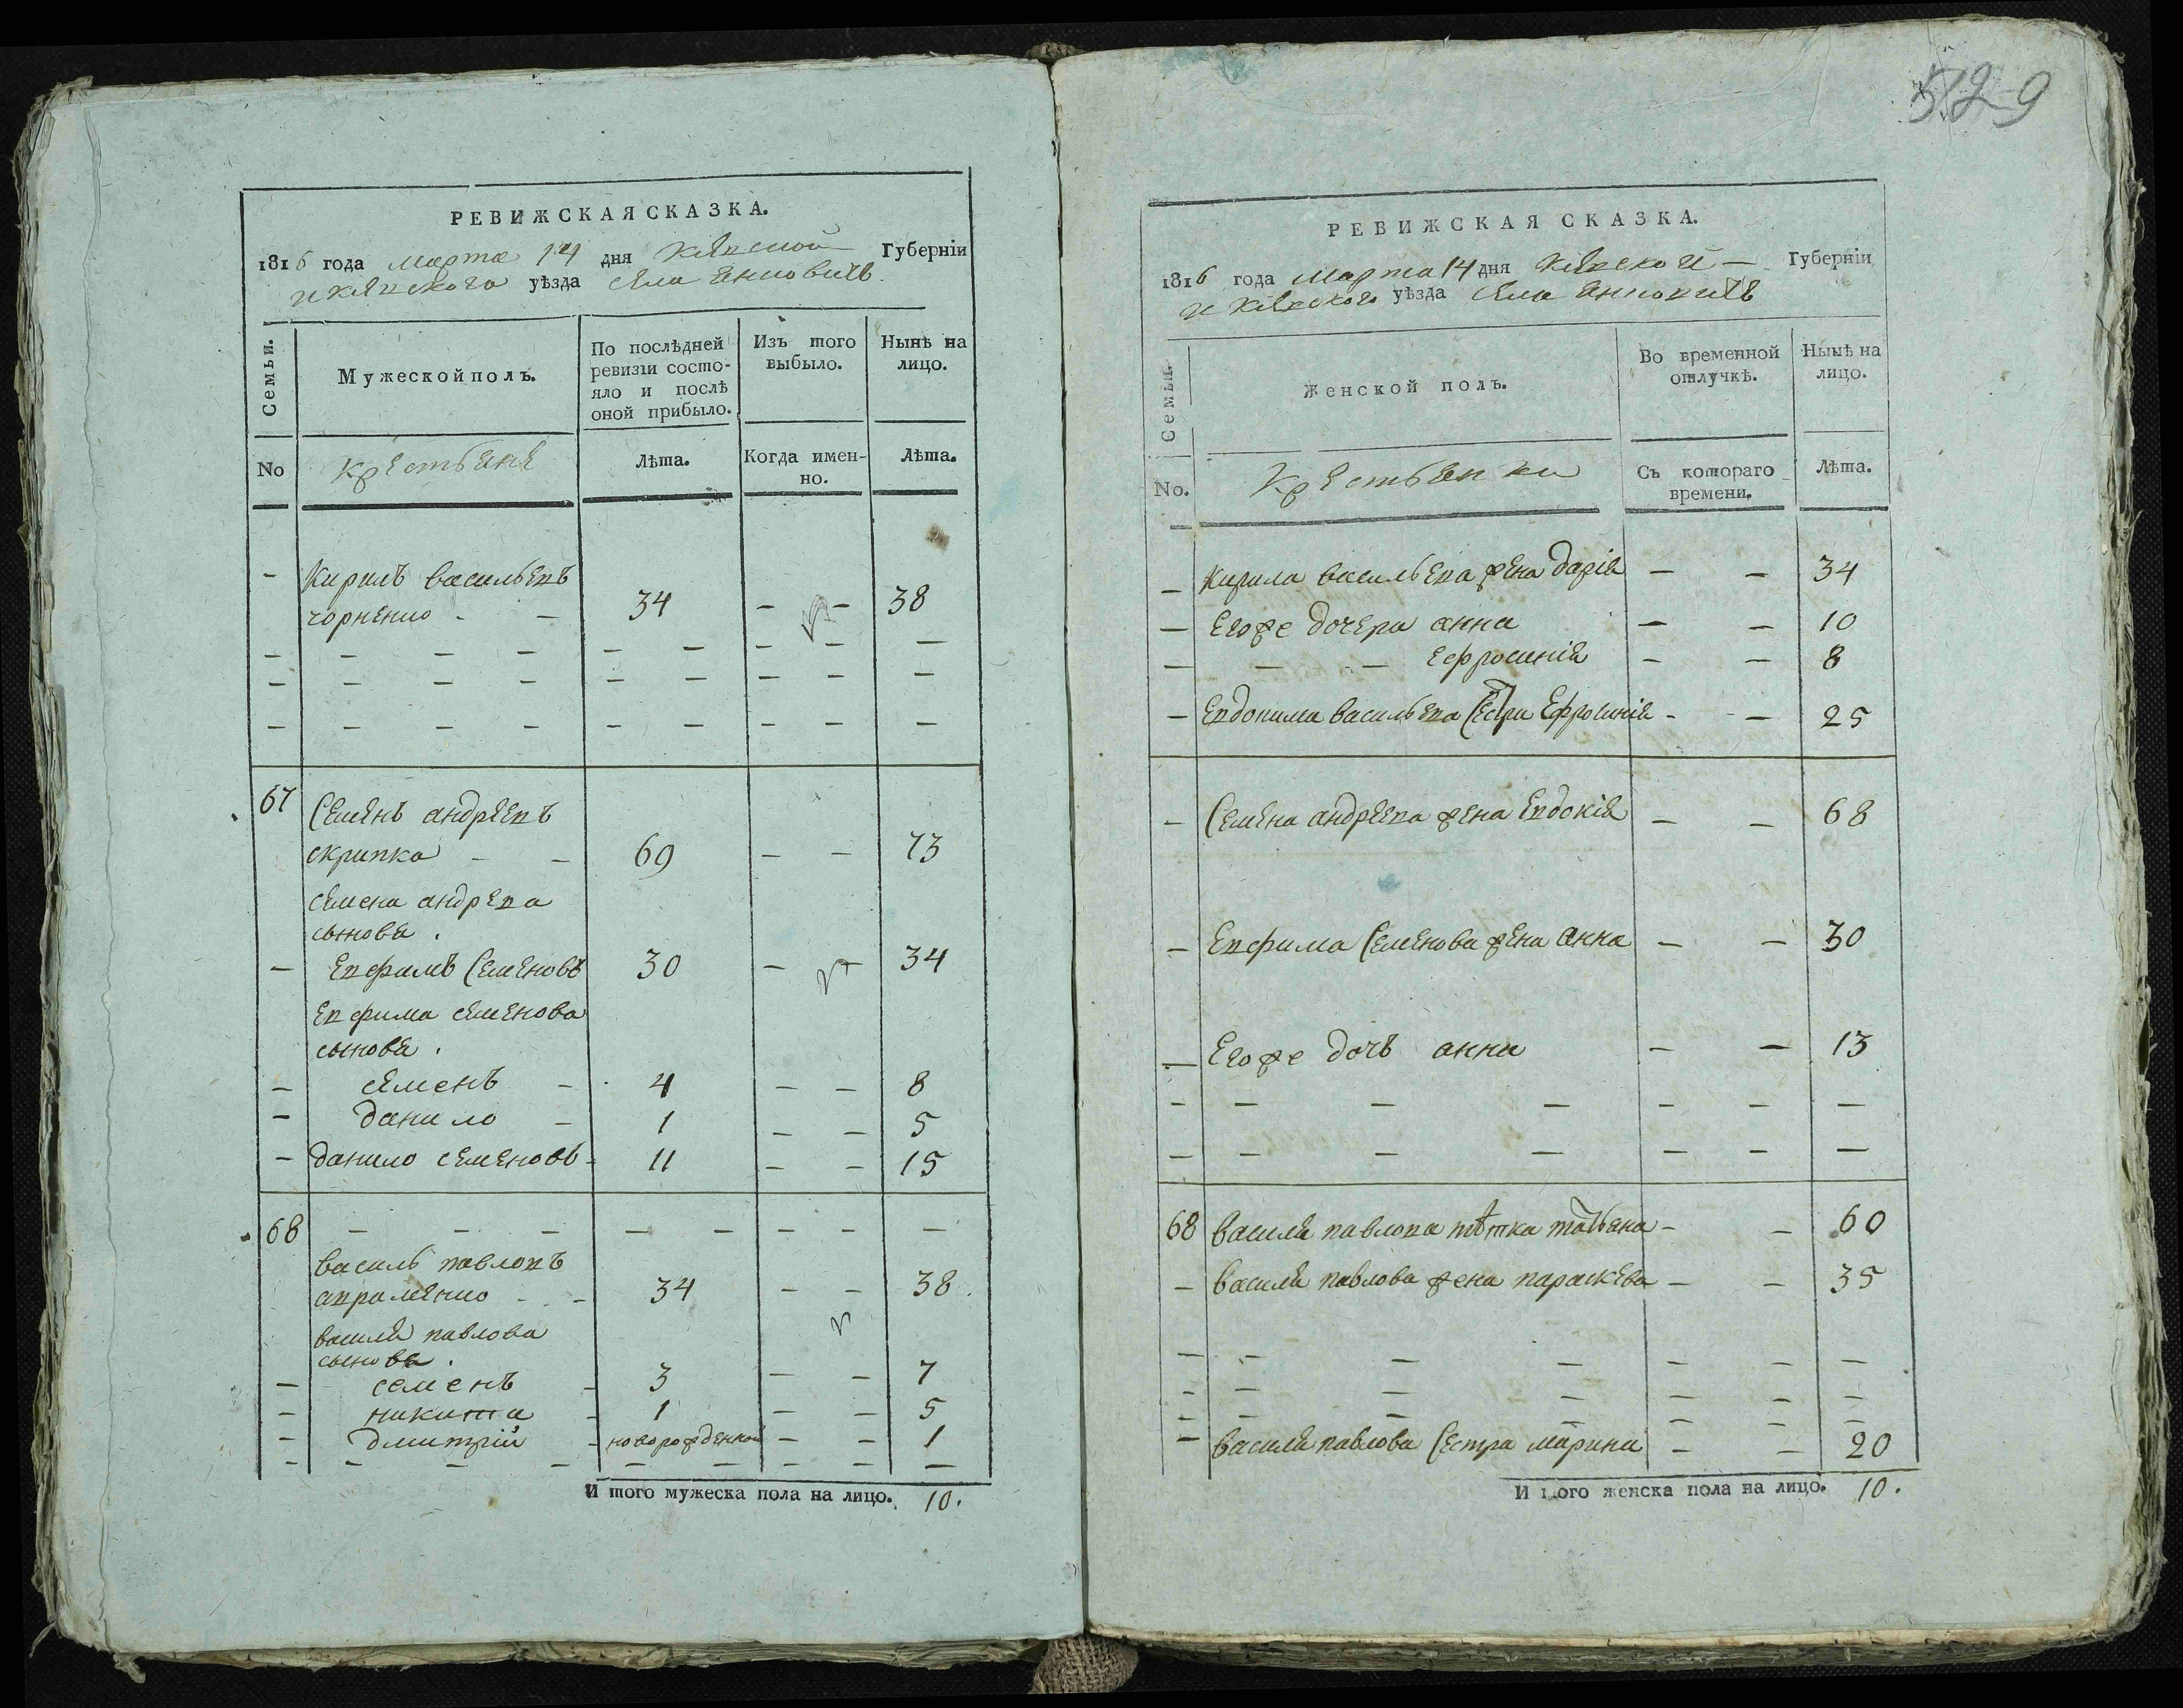 529
РЕВИЖСКАЯ СКАЗКА.
1816 года марта 14 дня Кіевской Губерніи
и Кіевского уѣзда села Янковичъ
Семьи.
Мужеской полъ.
По послѣдней ревизіи состо-
яло и послѣ
оной прибыло.
Изъ того
выбыло.
Нынѣ на
лицо.
No
Крестьяне
Лѣта.
Когда имен-
но.
Лѣта.
Кирилъ васильевъ
чорненко - - 34 - - 38
67 Семенъ андрѣевъ
скрипка - - 69 - - 73
семена андрѣева
сыновя.
- Евфимъ Семеновъ 30 - - 34
Евфима семенова
сыновя.
- семенъ - 4 - - 8
- данило - 1 - - 5
- данило семеновъ - 11 - - 15
68 - - - - - - - -
василь павловъ
авраменко - - 34 - - 38.
василя павлова
сыновя.
- семенъ - 3 - - 7
- никита - 1 - - 5
- дмитрій - новорожденной - - 1
И того мужеска пола на лицо. 10.
РЕВИЖСКАЯ СКАЗКА.
1816 года марта 14 дня Кіевской - Губерніи
и Кіевского уѣзда села Янковичъ
Семьи.
Женской полъ.
Во временной
отлучкѣ.
Нынѣ на
лицо.
No.
Крестьянки
Съ котораго
времени.
Лѣта.
- Кирила васильева жена дарія - - 34
- Егоже дочера анна - - 10
- - - Ефросинія - - 8
- Евдокима васильева Сестра Ефросинія - - 25
- Семена андрѣева жена Евдокія - - 68
- Евфима Семенова жена анна - - 30
- Егоже дочь анна - - 13
68 василя павлова тѣтка татьяна - - 60
- василя павлова жена параскева - - 35
- василя павлова Сестра марина - - 20
И того женска пола на лицо. 10.